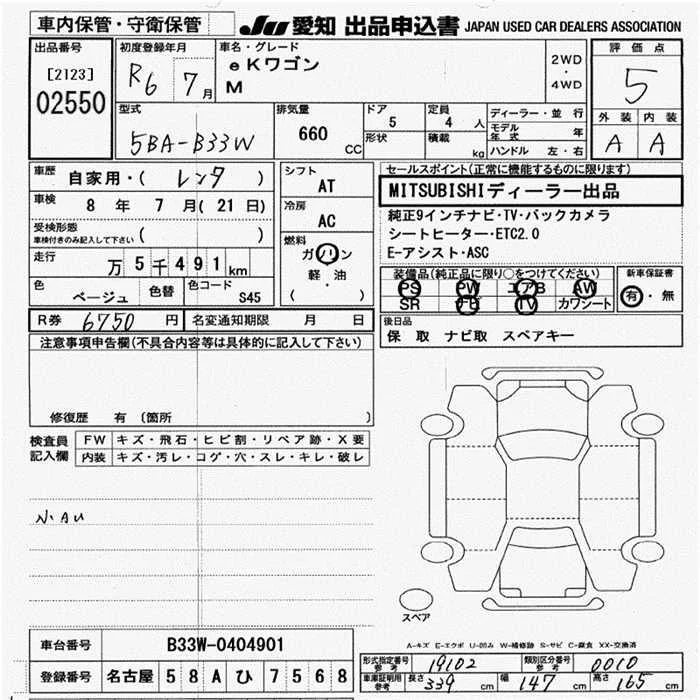 車内保管・守衛保管
JU 愛知 出品申込書 JAPAN USED CAR DEALERS ASSOCIATION
出品番号
[2123]
02550
初度登録年月
R6 7月
車名・グレード
eKワゴン
M
2WD
・
4WD
評価点
5
外装 内装
A A
型式
5BA-B33W
排気量
660 CC
ドア 5
形状
定員 4 人
積載 kg
ディーラー・並行
モデル年式 年
ハンドル 左・右
車歴 自家用・( レンタ )
車検 8 年 7 月 ( 21 日 )
受検形態
車検付きのみ記入して下さい ( )
走行 万 5 千 4 9 1 km
色 ベージュ 色替 色コード S45
シフト
AT
冷房
AC
燃料
ガソリン
軽・油
( )
セールスポイント(正常に機能するものに限ります)
MITSUBISHIディーラー出品
純正9インチナビ・TV・バックカメラ
シートヒーター・ETC2.0
E-アシスト・ASC
装備品(純正品に限り○をつけてください)
PS PW エアB AW
SR ナビ TV カワシート
新車保証書
有・無
R券 6750 円 名変通知期限 月 日
後日品
保 取 ナビ取 スペアキー
注意事項申告欄(不具合内容等は具体的に記入して下さい)
修復歴 有 (箇所 )
検査員記入欄
FW キズ・飛石・ヒビ割・リペア跡・X要
内装 キズ・汚レ・コゲ・穴・スレ・キレ・破レ
小AU
スペア
A-キズ E-エクボ U-凹み W-補修跡 S-サビ C-腐食 XX-交換済
車台番号 B33W-0404901
登録番号 名古屋 5 8 A ひ 7 5 6 8
形式指定番号 参考 19102 類別区分番号 参考 0010
車庫証明用 参考 長さ 339 cm 幅 147 cm 高さ 165 cm